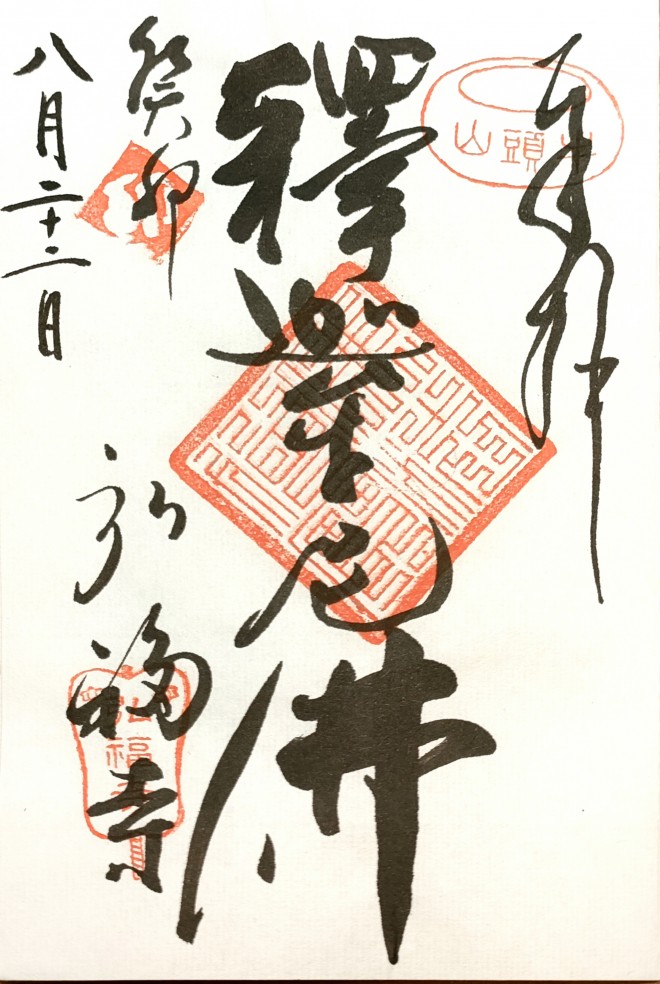 奉拝
牛頭山
釋迦牟尼佛
癸卯
八月二十二日
弘福寺
弘福寺